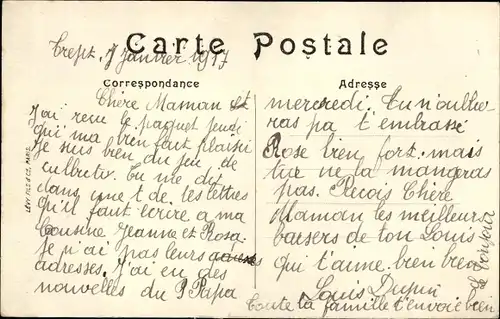 Trept, 7 Janvier 1917
Carte Postale
Correspondance
Adresse
Chère Maman et
J'ai reçu le paquet jeudi
qui m'a bien fait plaisir
je suis bien du jeu de
Tu me dit
dans une t de tes lettres
qu'il faut ecrire a ma
Cousine Jeanne et Rosa.
Je n'ai pas leurs
adresses. J'ai eu des
nouvelles du P Papa
mercredi. Tu n'oublie
ras pa t'embrassé
Rose bien fort mais
tu ne la mangras
pas. Recois Chère
Maman les meilleurs
baisers de ton Louis
qui t'aime bien bien
Louis Dupin
toute la famille t'envoie bien
le bonjour
LEVY FILS & Cie, PARIS